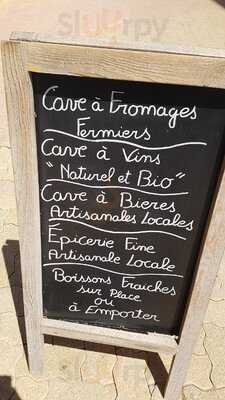 Sluurpy
Cave à Fromages
Fermiers
Cave à Vins
"Naturel et Bio"
Cave à Bieres
Artisanales Locales
Épicerie Fine
Artisanale Locale
Boissons Fraiches
sur Place
ou
à Emporter